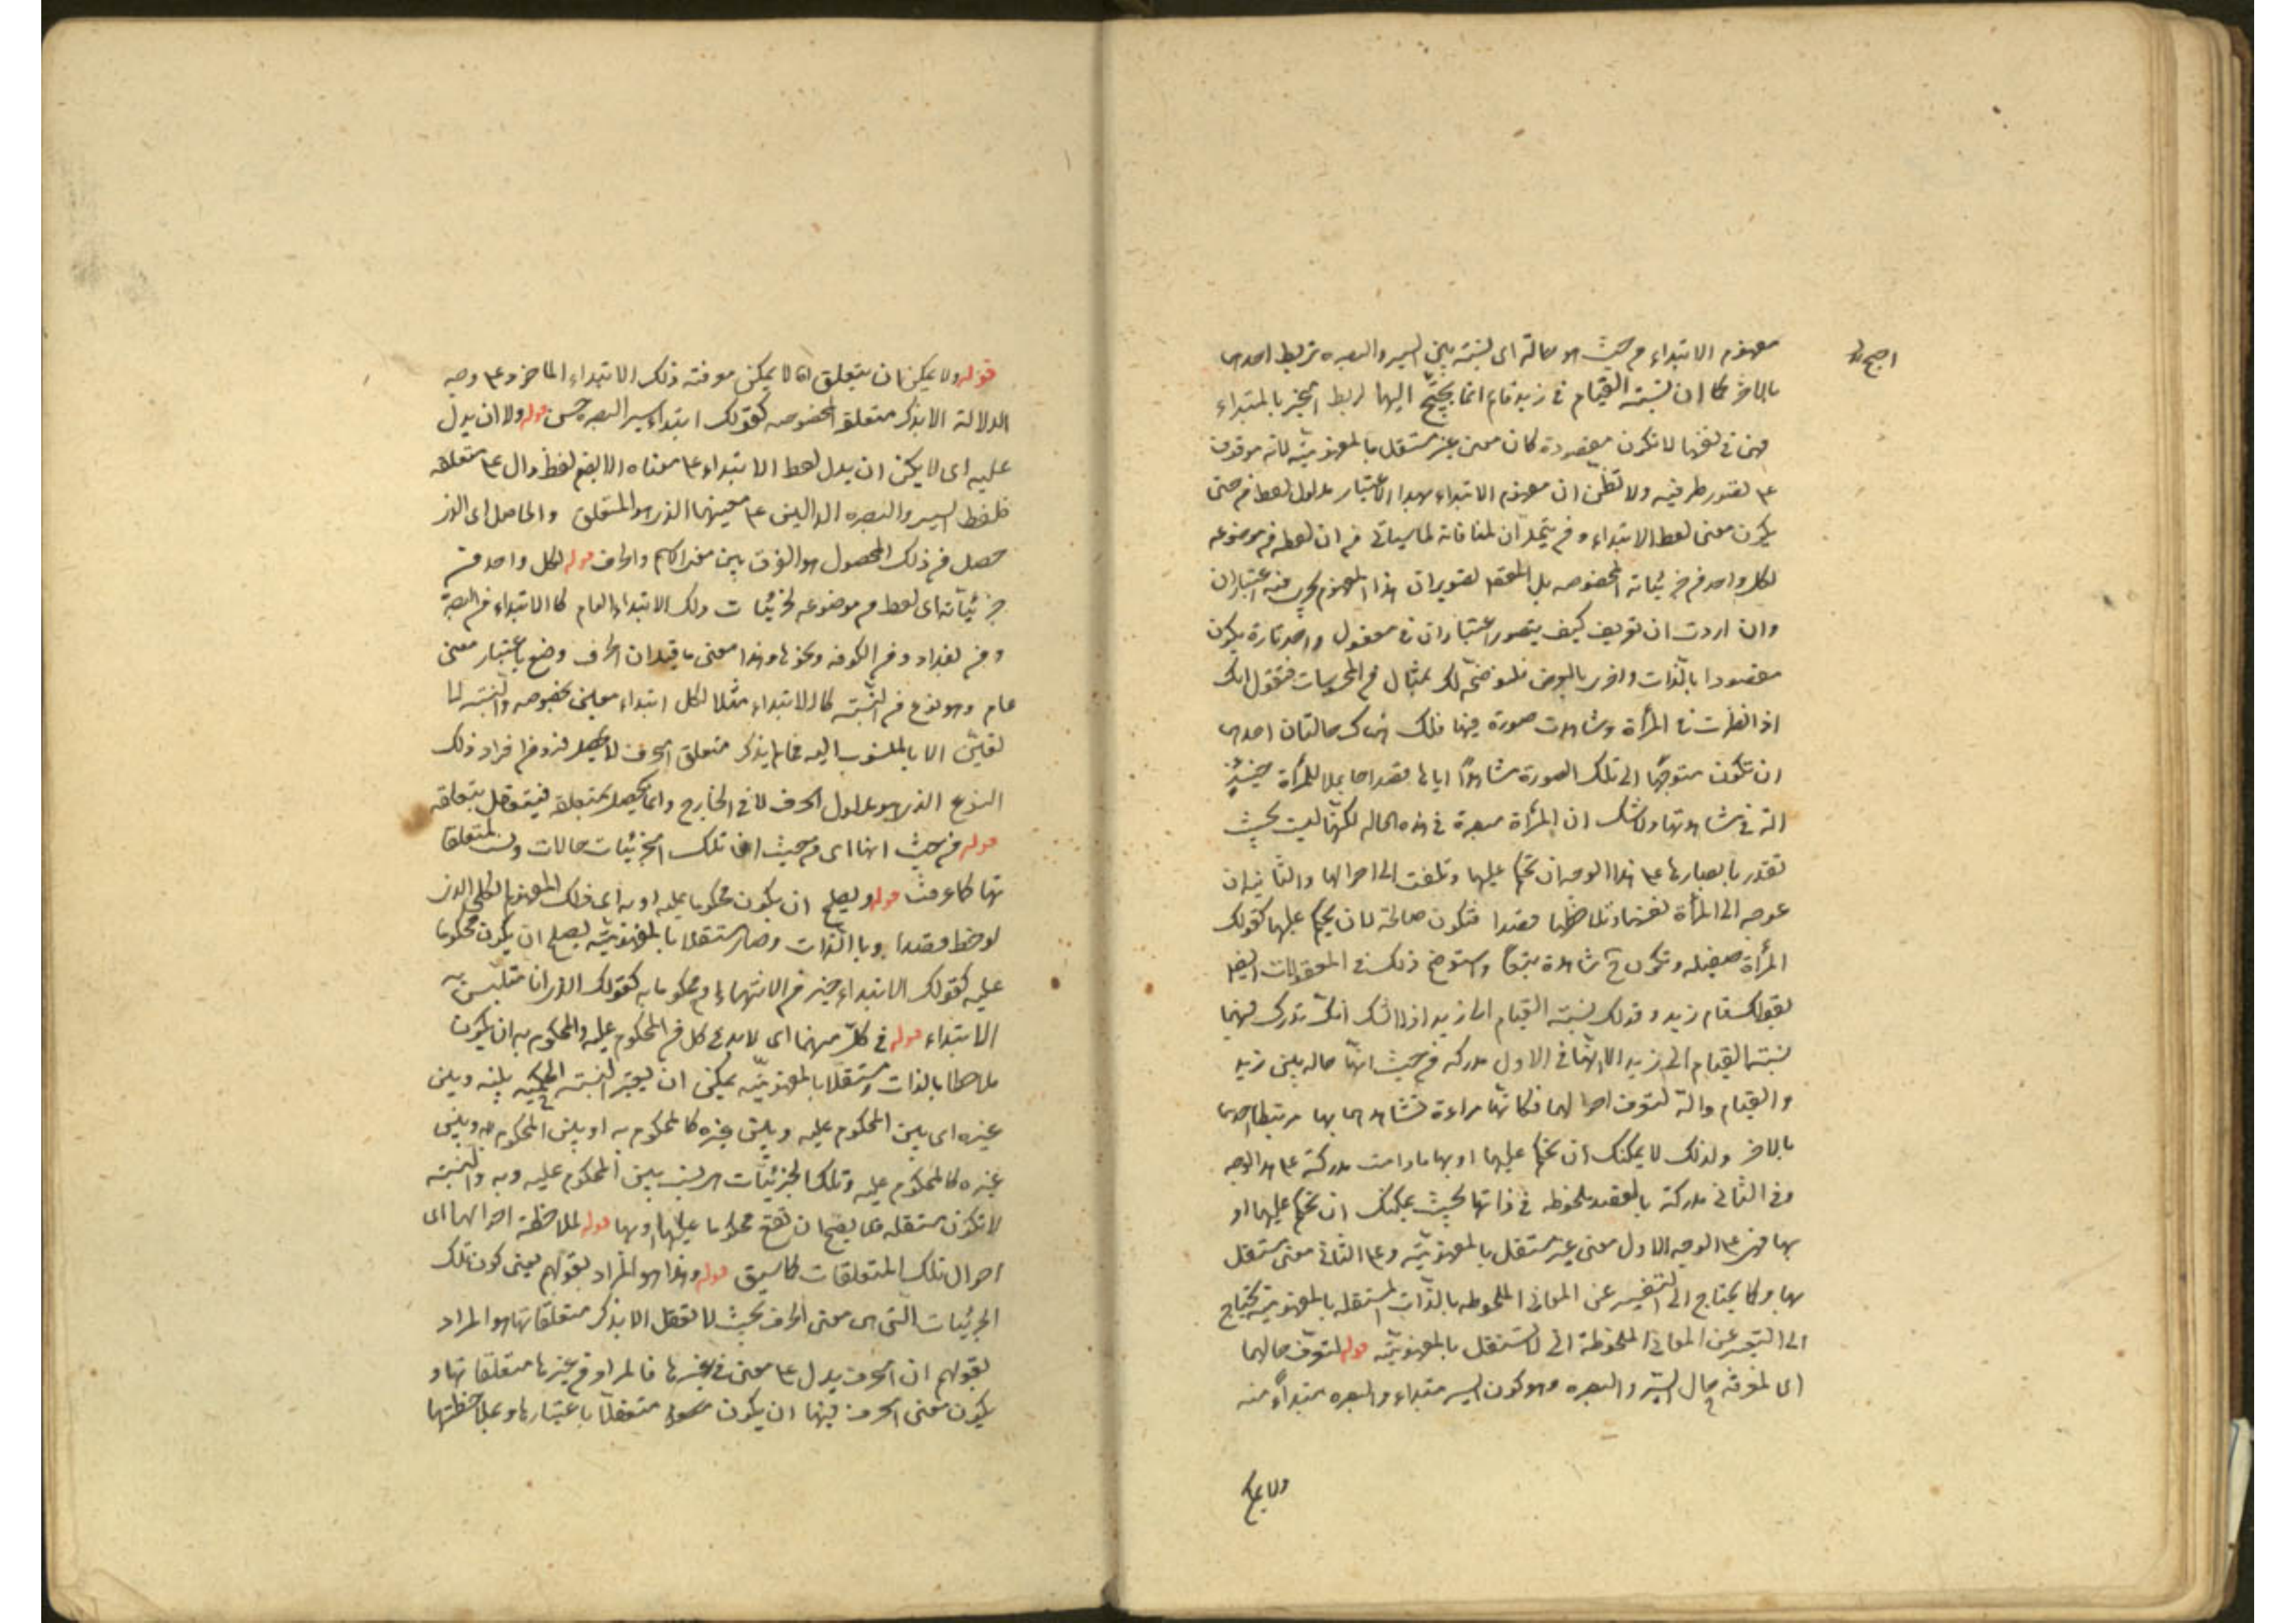 مفهوم الابتداء من حيث هو حالة اى نسبة بين السير والبصره تربط احدهما
بالاخر كما ان نسبة القيام فى زيد قائم انما يحتج اليها لربط الخبر بالمبتداء
فهى فى نفسها لا تكون مقصودة كان معنى غير مستقل بالمفهومية لانه موقوف
على تصور طرفيه ولا تظن ان مفهوم الابتداء بهذا الاعتبار مدلول لفظ من حتى
يكون معنى لفظ الابتداء و من يتحدان لمنافاته لما سيأتى من ان لفظة من موضوعه
لكل واحد من جزئياته المخصوصه بل المقصد تصوير ان هذا المفهوم يجرى فيه اعتباران
وان اردت ان تعرف كيف يتصور اعتباران فى معقول واحد تارة يكون
مقصودا بالذات واخرى بالعرض فلنوضحه لك بمثال من المحسوسات فنقول انك
اذا نظرت فى المرأة وشاهدت صورة فيها فلك هناك حالتان احدهما
ان تكون متوجها الى تلك الصورة مشاهدًا اياها قصدا جاعلا للمرأة حينئذ
الة فى مشاهدتها ولا شك ان المرأة مبصرة فى هذه الحاله لكنها ليست بحيث
تقدر بابصارها على هذا الوجه ان تحكم عليها وتلتفت الى احوالها والثانية ان
توجه الى المرأة نفسها وتلاحظها قصدا فتكون صالحة لان يحكم عليها كقولك
المرأة صقيله وتكون ح مشاهدة تبعًا واستوضح ذلك فى المعقولات ايضا
بقولك قام زيد وقولك نسبة القيام الى زيد اذ لا شك انك تدرك فيهما
نسبة القيام الى زيد الا انها فى الاول مدركه من حيث انها حاله بين زيد
والقيام والة لتعرف احوالهما فكانها مراءة تشاهدهما بها مرتبطا احدهما
بالاخر ولذلك لا يمكنك ان تحكم عليها او بها ما دامت مدركة على هذا الوجه
وفى الثانى مدركة بالقصد ملحوظه فى ذاتها بحيث يمكنك ان تحكم عليها او
بها فهى على الوجه الاول معنى غير مستقل بالمفهومية وعلى الثانى معنى مستقل
بها وكما يحتاج الى التعبير عن المعانى الملحوظه بالذات المستقله بالمفهومية يحتاج
الى التعبير عن المعانى الملحوظة التى لا تستقل بالمفهومية قوله لتعرف حالهما
اى لمعرفة حال السير والبصره وهو كون السير مبتداء والبصره مبتداً منه
ولا يمكن
قوله ولا يمكن ان يتعلق اى لا يمكن معرفة ذلك الابتداء الماخوذ على وجه
الدلالة الا بذكر متعلق المخصوصه كقولك ابتداء سير البصره حسن قوله ولا ان يدل
عليه اى لا يمكن ان يدل لفظ الابتداء على معناه الا بضم لفظ دال على متعلقه
فلفظ السير والبصره الدالين على معنيهما الذى هو المتعلق والحاصل اى الذى
حصل من ذلك المحصول هو الفرق بين معنى الاسم والحرف قوله لكل واحد من
جزئياته اى لفظ من موضوعه لجزئيات ذلك الابتداء العام كالابتداء من البصرة
ومن بغداد ومن الكوفه ونحوها وهذا معنى ما قيل ان الحرف وضع باعتبار معنى
عام وهو نوع من النسبة كالابتداء مثلا لكل ابتداء معين بخصوصه والنسبة لا
تتعين الا بالمنسوب اليه فما لم يذكر متعلق الحرف لا يحصل فرد من افراد ذلك
النوع الذى هو مدلول الحرف لا فى الخارج وانما يحصل بمتعلقه فيتعقل بتعلقه
قوله من حيث انها اى من حيث ان تلك الجزئيات حالات ونسب لمتعلقا
تها كما عرفت قوله ويصلح ان يكون محكوما عليه او به اى ذلك المفهوم الكلى الذى
لوحظ قصدا وبالذات وصار مستقلا بالمفهومية يصلح ان يكون محكوما
عليه كقولك الابتداء خير من الانتهاء او محكوما به كقولك الذى انا متلبس به
الابتداء قوله فى كل منهما اى لابد فى كل من المحكوم عليه والمحكوم به ان يكون
ملاحظا بالذات ومستقلا بالمفهومية يمكن ان يعتبر النسبة الحكمية بينه وبين
غيره اى بين المحكوم عليه وبين غيره كالمحكوم به او بين المحكوم به وبين
غيره كالمحكوم عليه وتلك الجزئيات هى نسب بين المحكوم عليه وبه والنسبة
لا تكون مستقله فلا يصح ان تقع محكوما عليها او بها قوله لملاحظة احوالها اى
احوال تلك المتعلقات كما سبق قوله وهذا هو المراد بقولهم يعنى كون تلك
الجزئيات التى هى معنى الحرف بحيث لا تعقل الا بذكر متعلقاتها هو المراد
بقولهم ان الحرف يدل على معنى فى غيرها فالمراد من غيرها متعلقاتها و
يكون معنى الحرف فيها ان يكون متعقلا باعتبارها وبملاحظتها